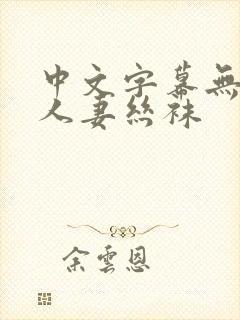 中文字幕無
人妻絲袜
余雲恩